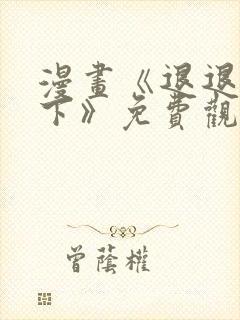 漫畫《退退
下》免費觀
曾蔭權